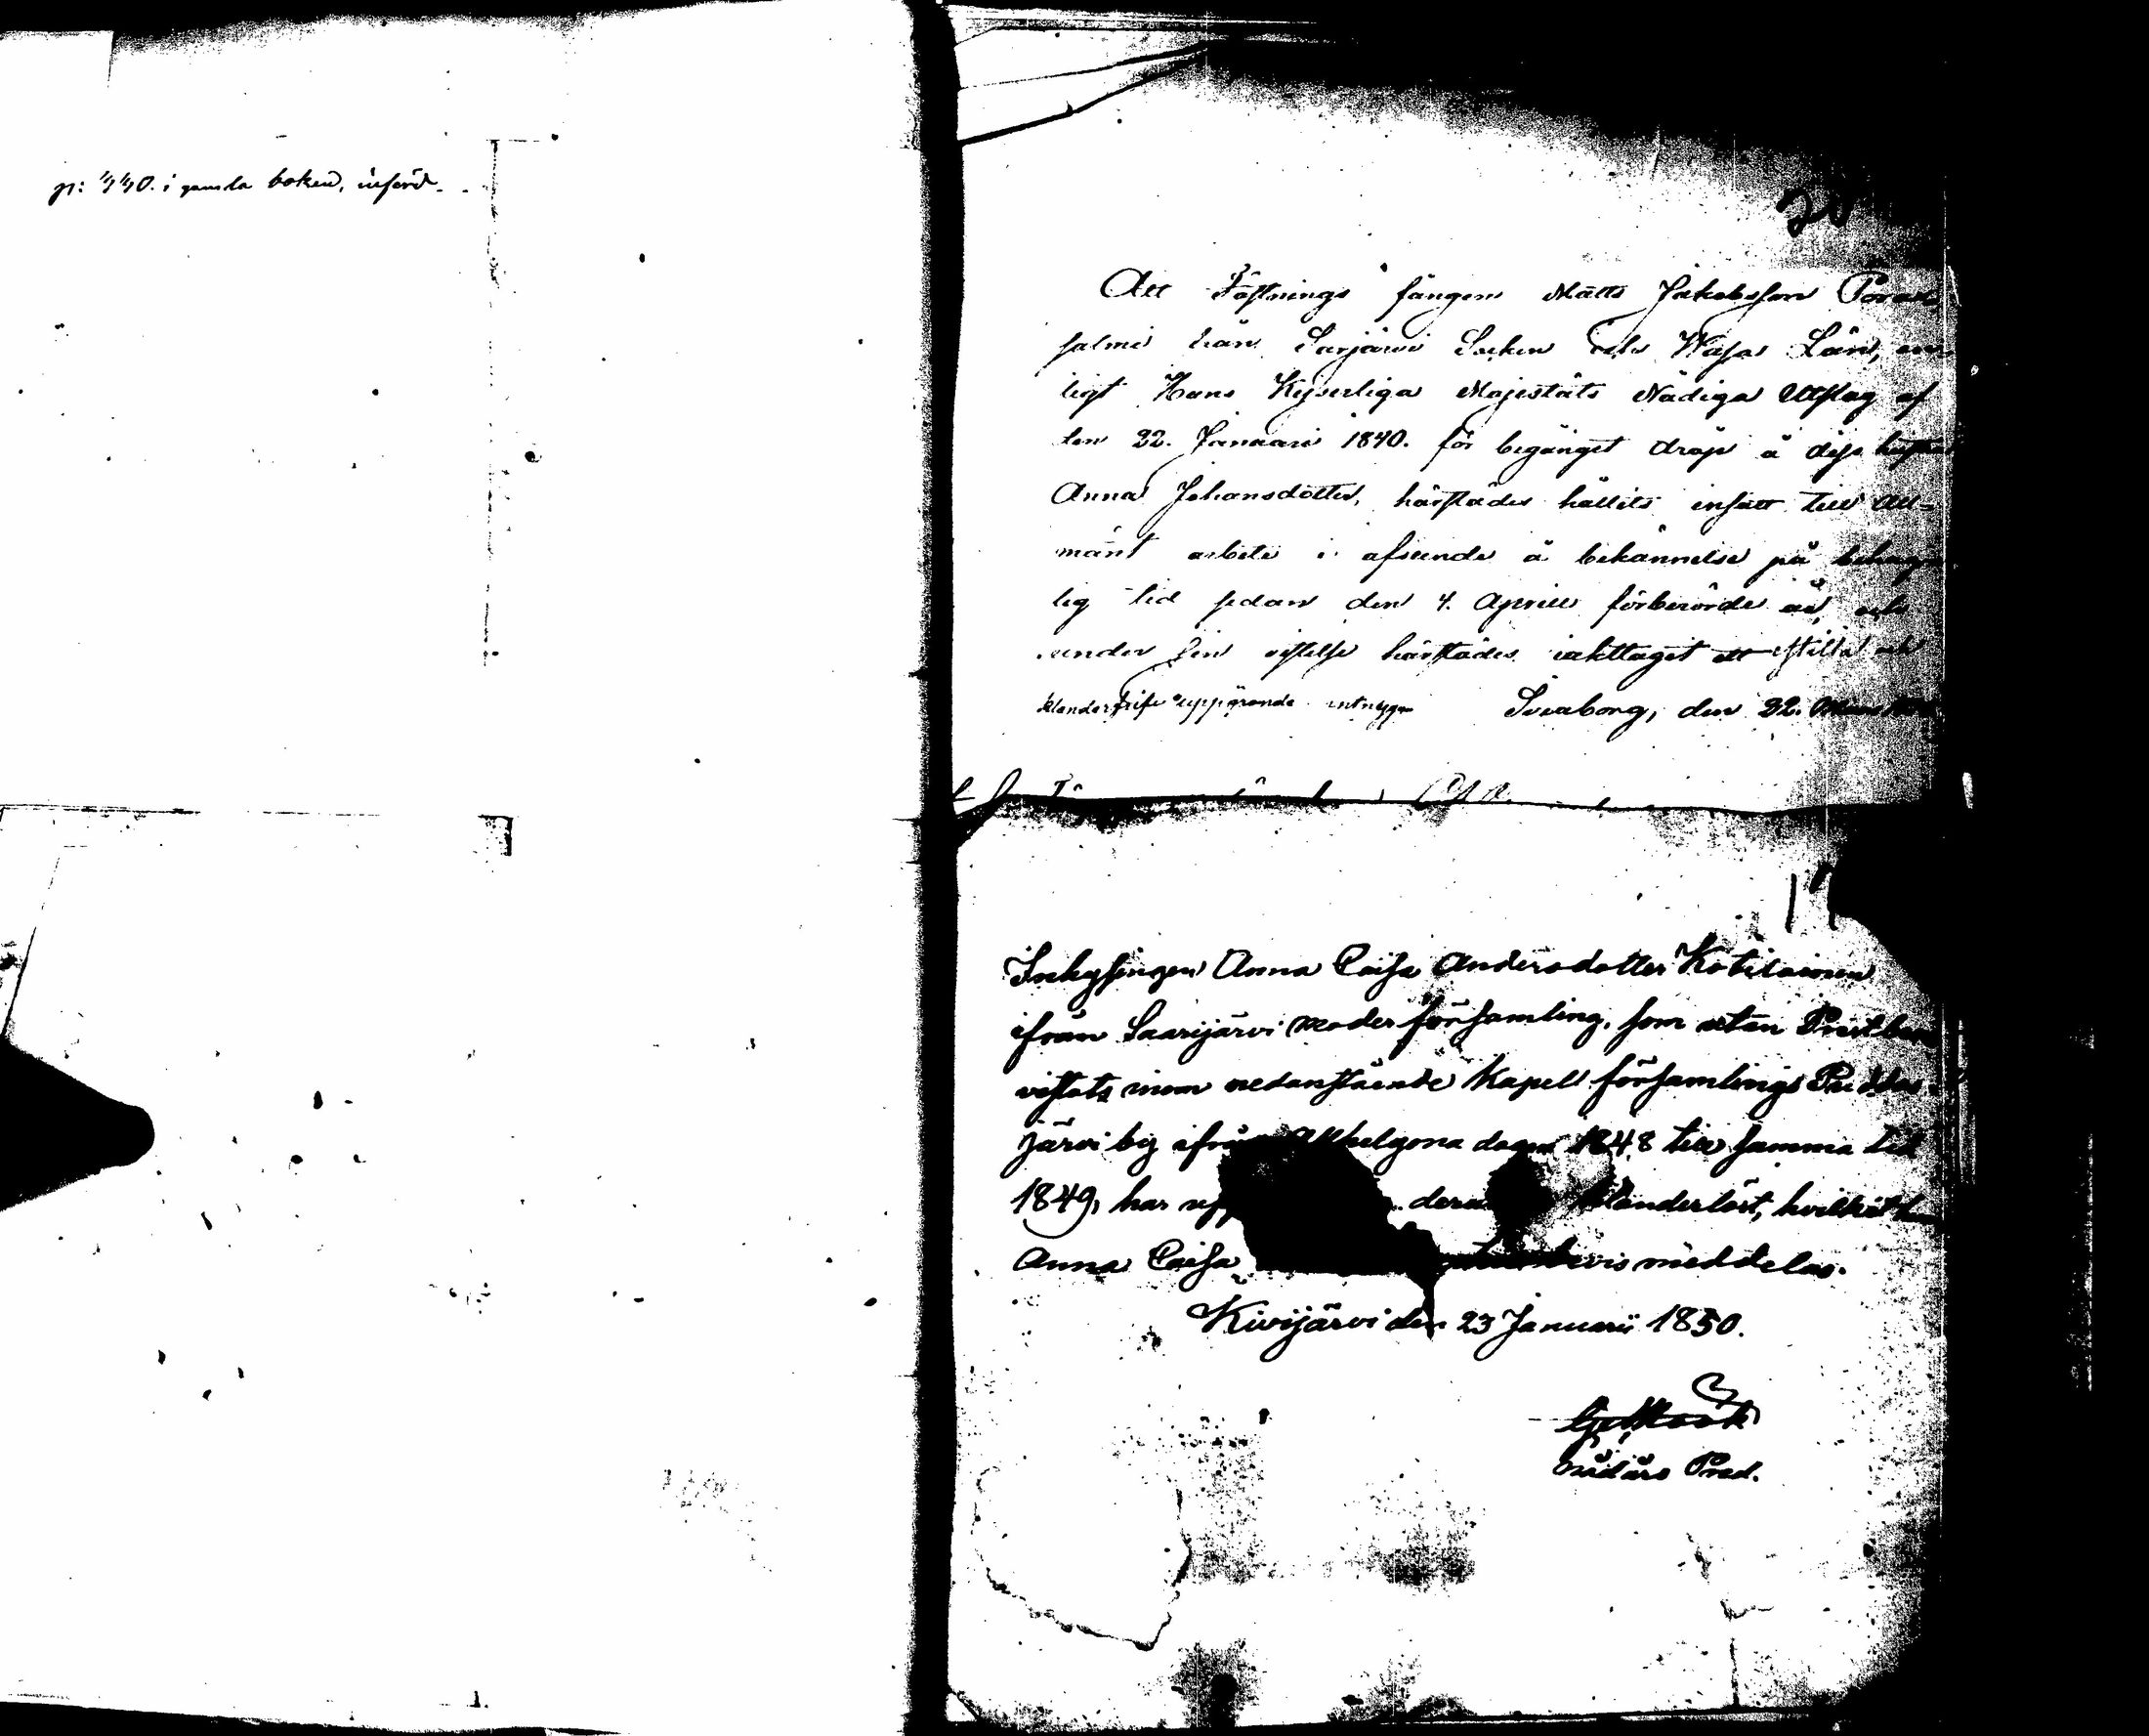 p: 440. i gamla boken, införd.
Att Fästnings fången Matts Jakobsson Poras
salmi från Sarjärvi Socken och Wasa Län, en-
ligt Hans Kejserliga Majestäts Nådiga Utslag af
den 22. Januari 1840. för begånget dråp å dess hustru
Anna Johansdotter, härstädes hållits insatt till All-
mänt arbete i afseende å bekännelse på
lig tid sedan den 4. Aprill förberörde år, och
under sin vistelse härstädes iakttagit ett stilla och
klanderfritt uppförande intygar Sveaborg, den 22.
Inhysingen Anna Caisa Andersdotter Kotilainen
ifrån Saarijärvi moder församling, som utan Prest
vistats inom nedanstående Kapell församlings
järvi by ifrån Allhelgona dagen 1848 till samma tid
1849, har klanderlöst, hvilket
Anna Caisa bevis meddelas.
Kivijärvi den 23 Januarii 1850.
nådårs Pred.